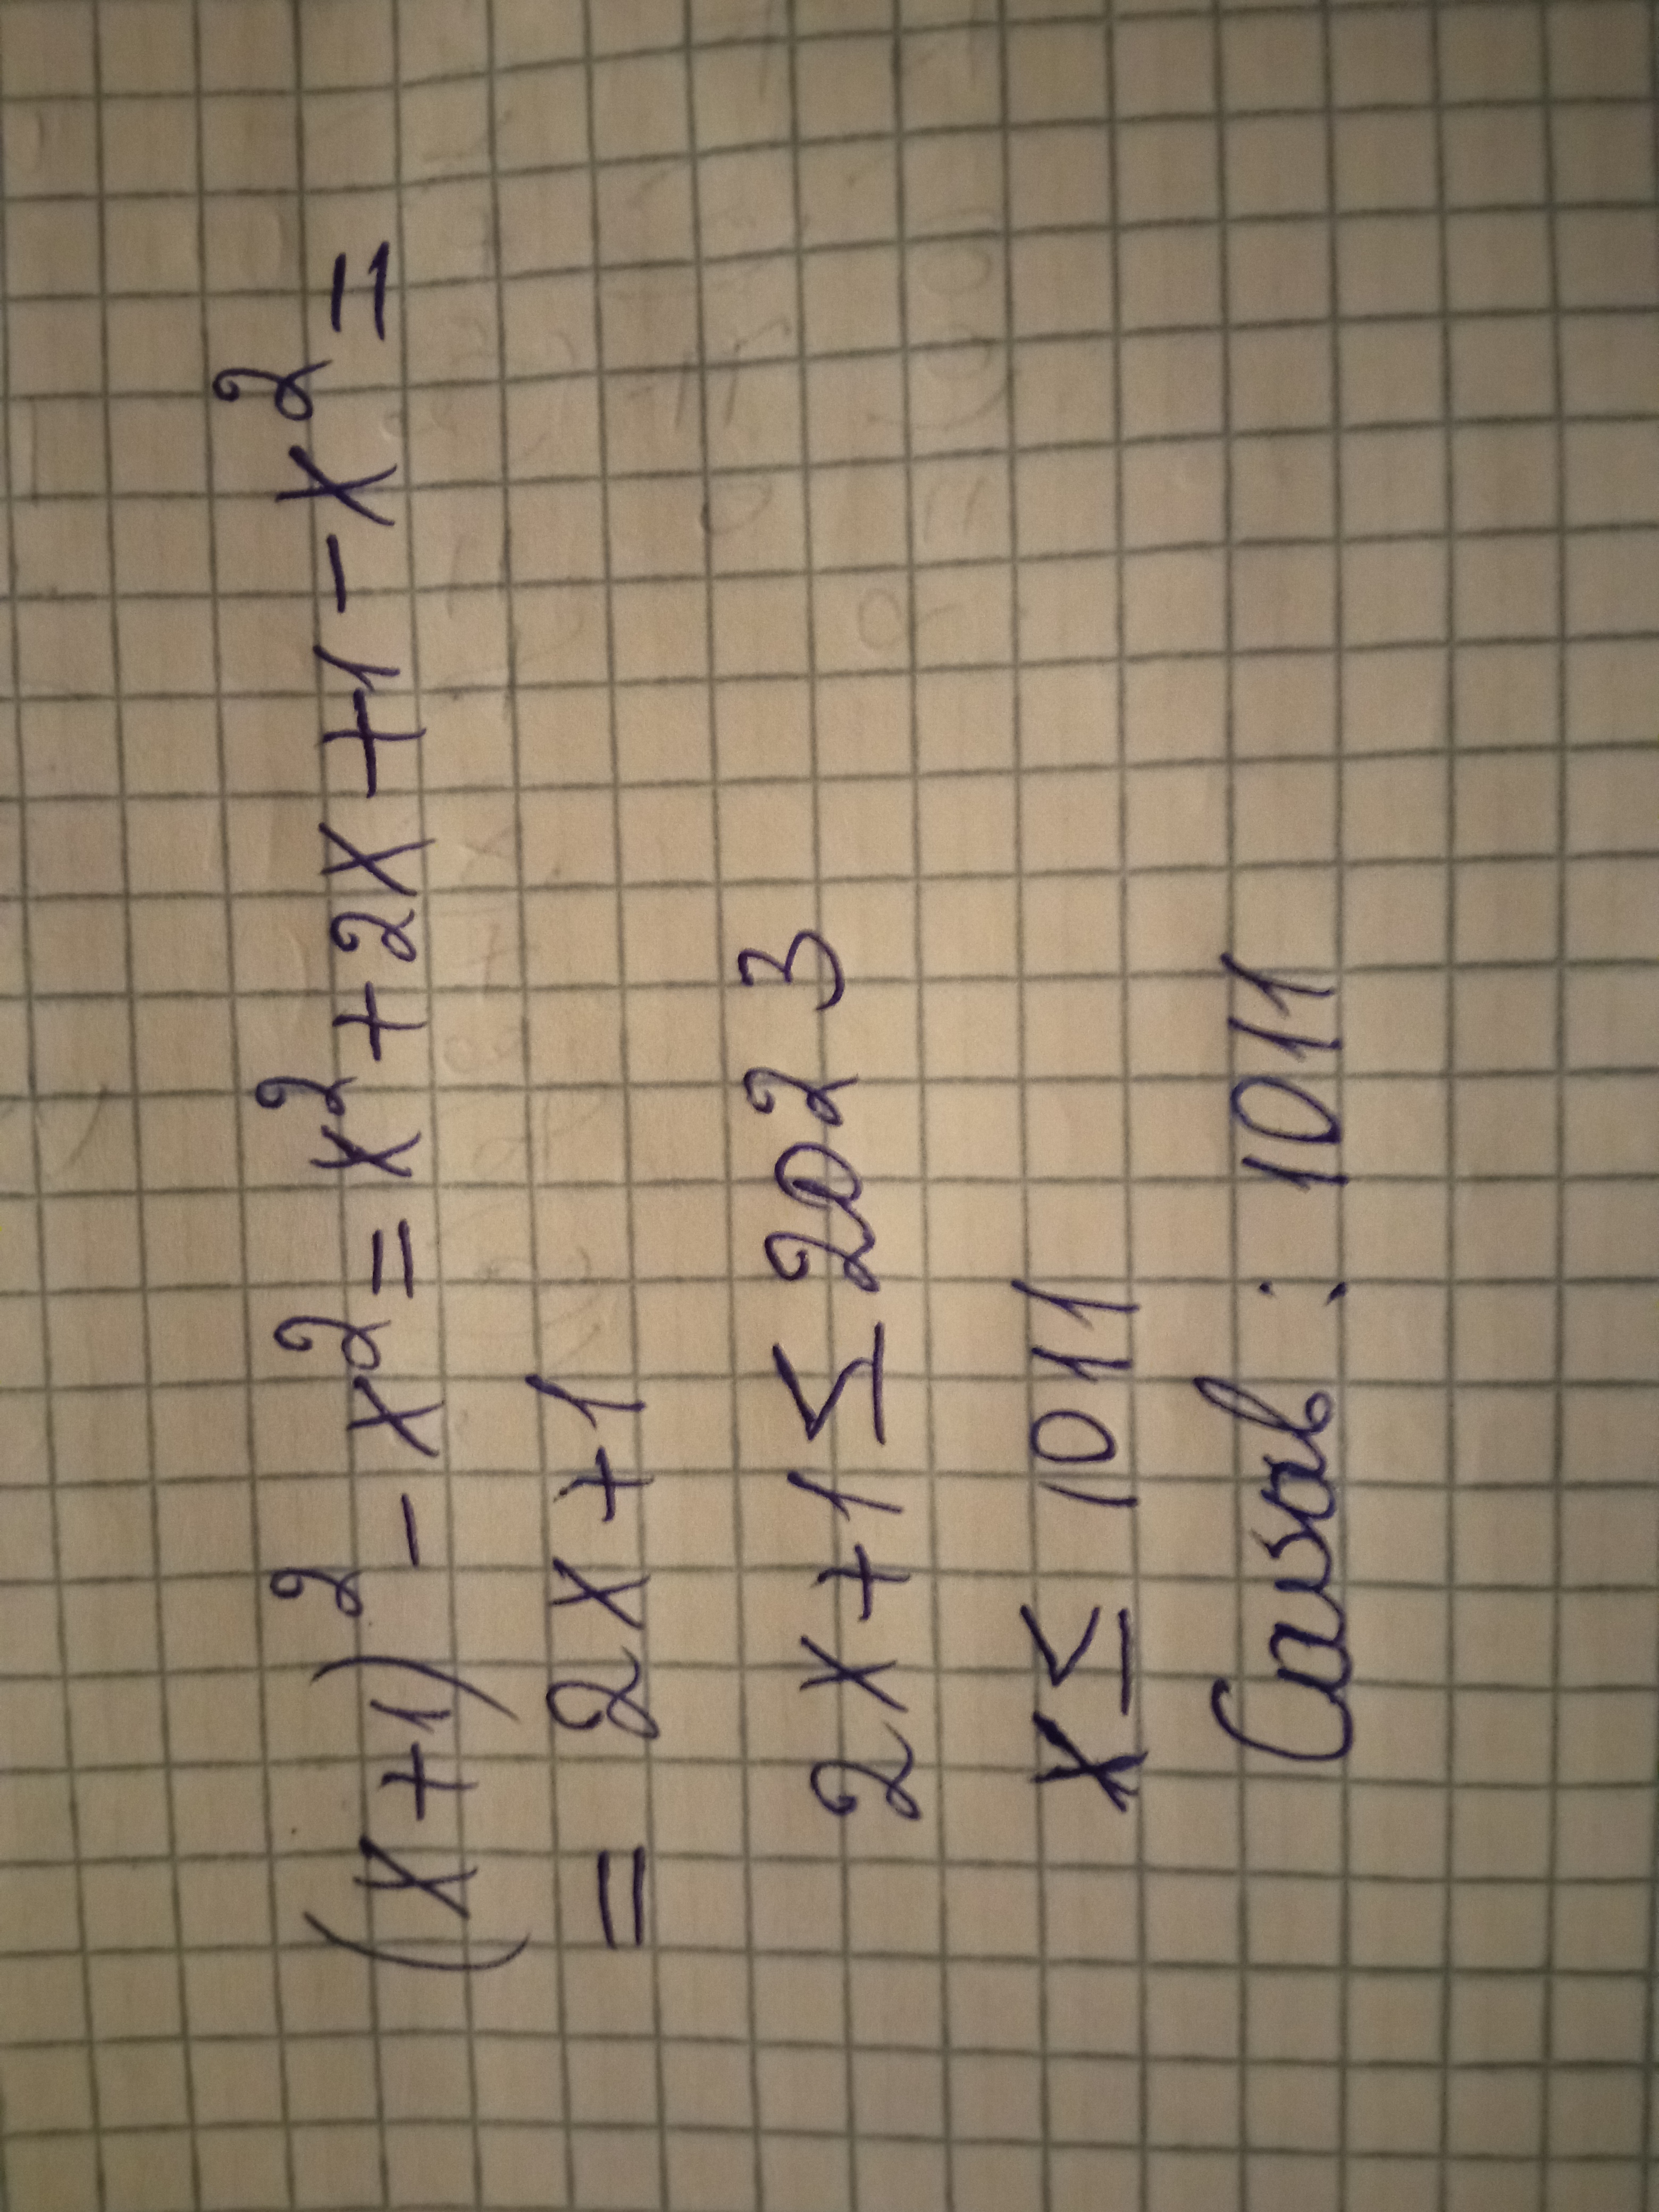 (x+1)² - x² = x² + 2x + 1 - x² =
= 2x + 1
2x + 1 ≤ 2023
x ≤ 1011
Cavab : 1011